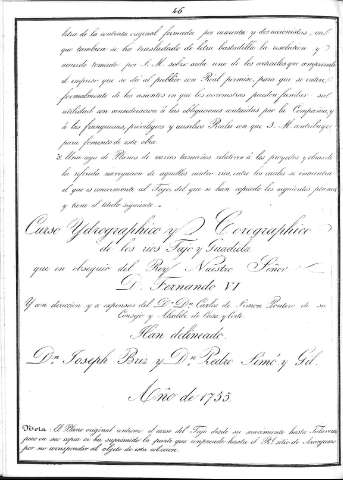 46
letra de la contrata original formada por cuarenta y dos accionistas, en el
que tambien se ha trasladado de letra bastardilla la resolucion y
acuerdo tomado por S. M. sobre cada uno de los articulos que comprende
el impreso que se dió al publico con Real permiso, para que se entere
formalmente de los asientos en que los accionistas pueden fundar su
utilidad con consideracion á las obligaciones contraidas por la Compania, y
á las franquezas, privilegios y auxilios Reales con que S. M. contribuye
para fomento de esta obra.
Una caja de Planos de varios tamaños relativos á los proyectos y obras de
la referida navegacion de aquellos cuatro rios, entre los cuales se encuentra
el que es concerniente al Tajo, del que se han copiado los siguientes planos
y tiene el titulo siguiente
Curso Ydrographico y Corographico
de los rios Tajo y Guadiela
que en obsequio del Rey Nuestro Señor
D. Fernando VI
Y con direccion y a expensas del Dr. Dn. Carlos de Simon Pontero de su
Consejo y Alcalde de Casa y Corte
Han delineado.
Dn. Joseph Briz y Dn. Pedro Simó y Gil.
Año de 1755
Nota. El Plano original contiene el curso del Tajo desde su nacimiento hasta Talavera
pero en su copia se ha suprimido la parte que comprende hasta el Rl. sitio de Aranjuez
por no corresponder al objeto de esta coleccion.